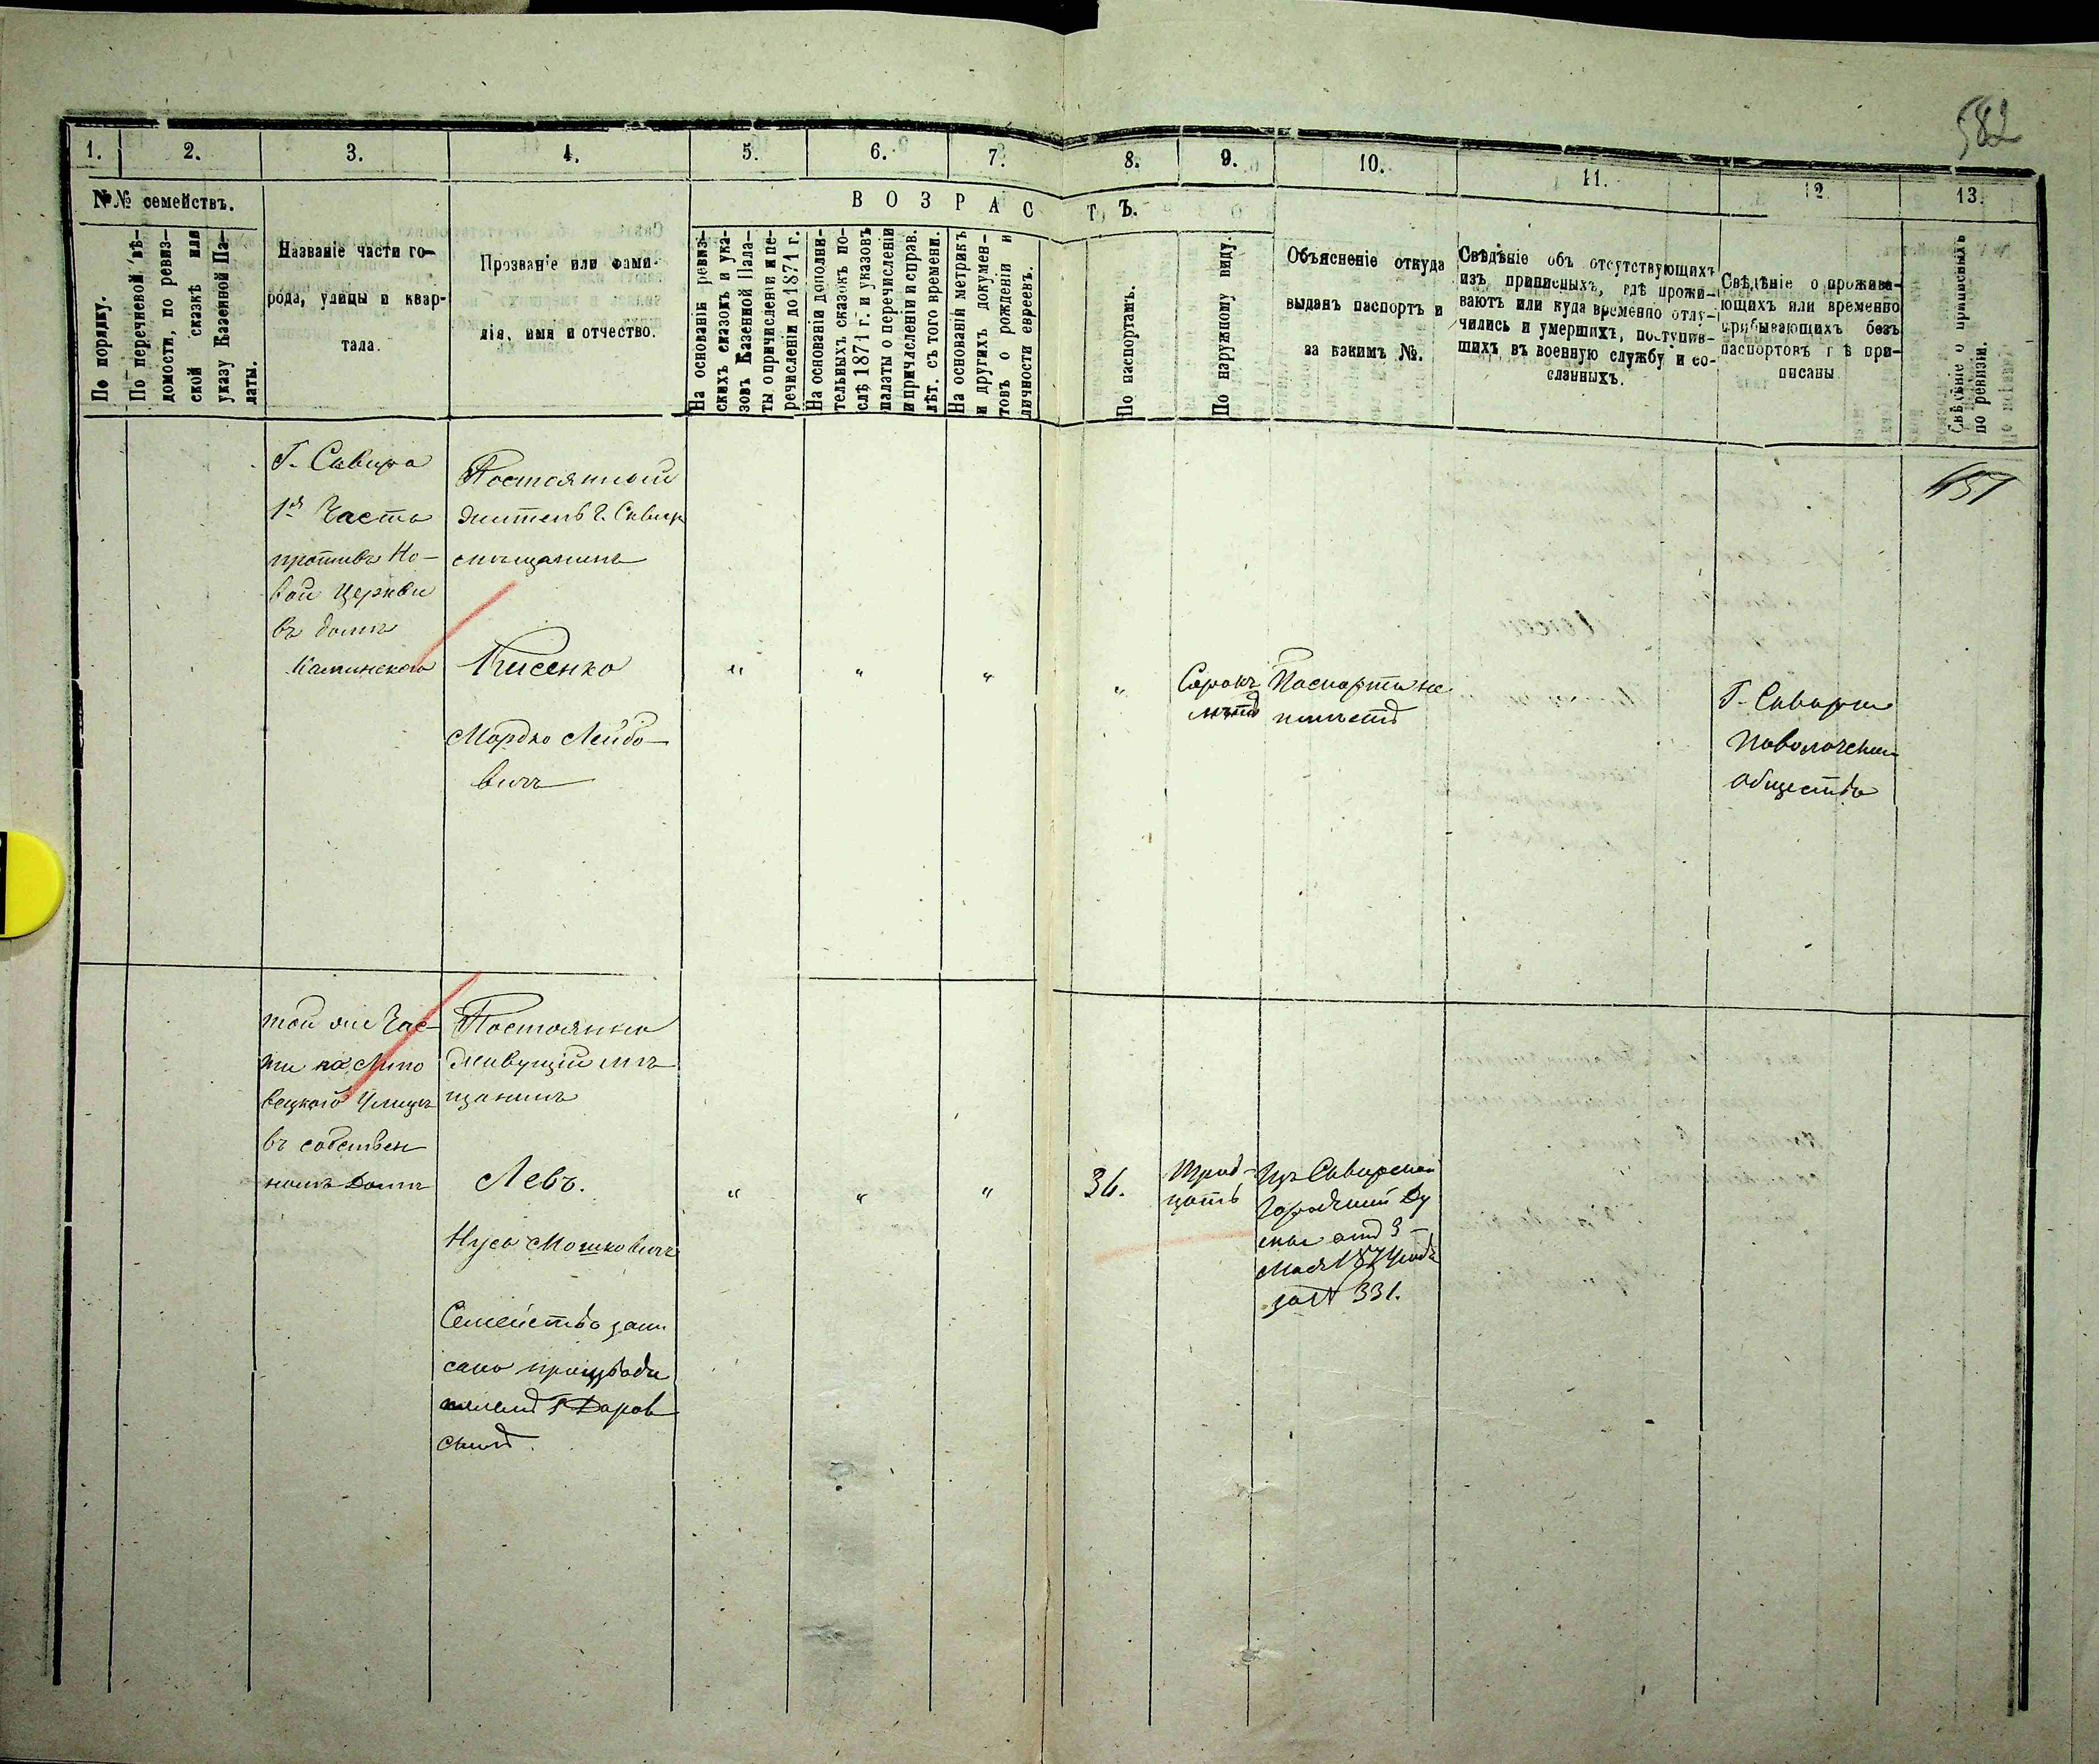 582
1.
2.
3.
4.
5.
6.
7.
8.
9.
10.
11.
12
13.
№№ семействъ.
По порядку.
По перечневой вѣ-
домости, по ревиз-
ской сказкѣ или
указу Казенной Па-
латы.
Названіе части го-
рода, улицы и квар-
тала.
Прозваніе или фами-
лія, имя и отчество.
ВОЗРАСТЪ.
На основаніи ревиз-
скихъ сказокъ и ука-
зовъ Казенной Пала-
ты о причисленіи и пе-
речисленіи до 1871 г.
На основаніи дополни-
тельныхъ сказокъ по-
слѣ 1871 г. и указовъ
палаты о перечисленіи
и причисленіи исправ.
лѣт. съ того времени.
На основаніи метрикъ
и другихъ докумен-
товъ о рожденіи и
личности евреевъ.
По паспортамъ.
По наружному виду.
Объясненіе откуда
выданъ паспортъ и
за какимъ №.
Свѣдѣніе объ отсутствующихъ
изъ приписныхъ, гдѣ прожи-
ваютъ или куда временно отлу-
чились и умершихъ, поступив-
шихъ въ военную службу и со-
сланныхъ.
Свѣдѣніе о прожива-
ющихъ или временно
прибывающихъ безъ
паспортовъ гдѣ при-
писаны
Свѣдѣніе о приписныхъ
по ревизіи.
Г. Сквира
1я Часть
противъ Но-
вой Церкви
въ домѣ
Каминскаго
Постоянный
житель г. Сквир
мѣщанинъ
Кисенко
Мордко Лейбо-
вичъ
"
"
"
"
Сорокъ
лѣтъ
Паспорта не
имѣетъ
Г. Сквиры
Паволочскаго
общества
той же Час-
ти на Липо
вецкой Улицѣ
въ собствен
номъ Домѣ
Постоянно
живущій мѣ
щанинъ
Левъ.
Нусь Мошковичъ
Семейство запи
сано производи
телемъ Г Даров
скимъ.
"
"
"
36.
Трид-
цать
Изъ Сквирской
Городской Ду
мы отъ 3
Мая 1874 года
за № 331.